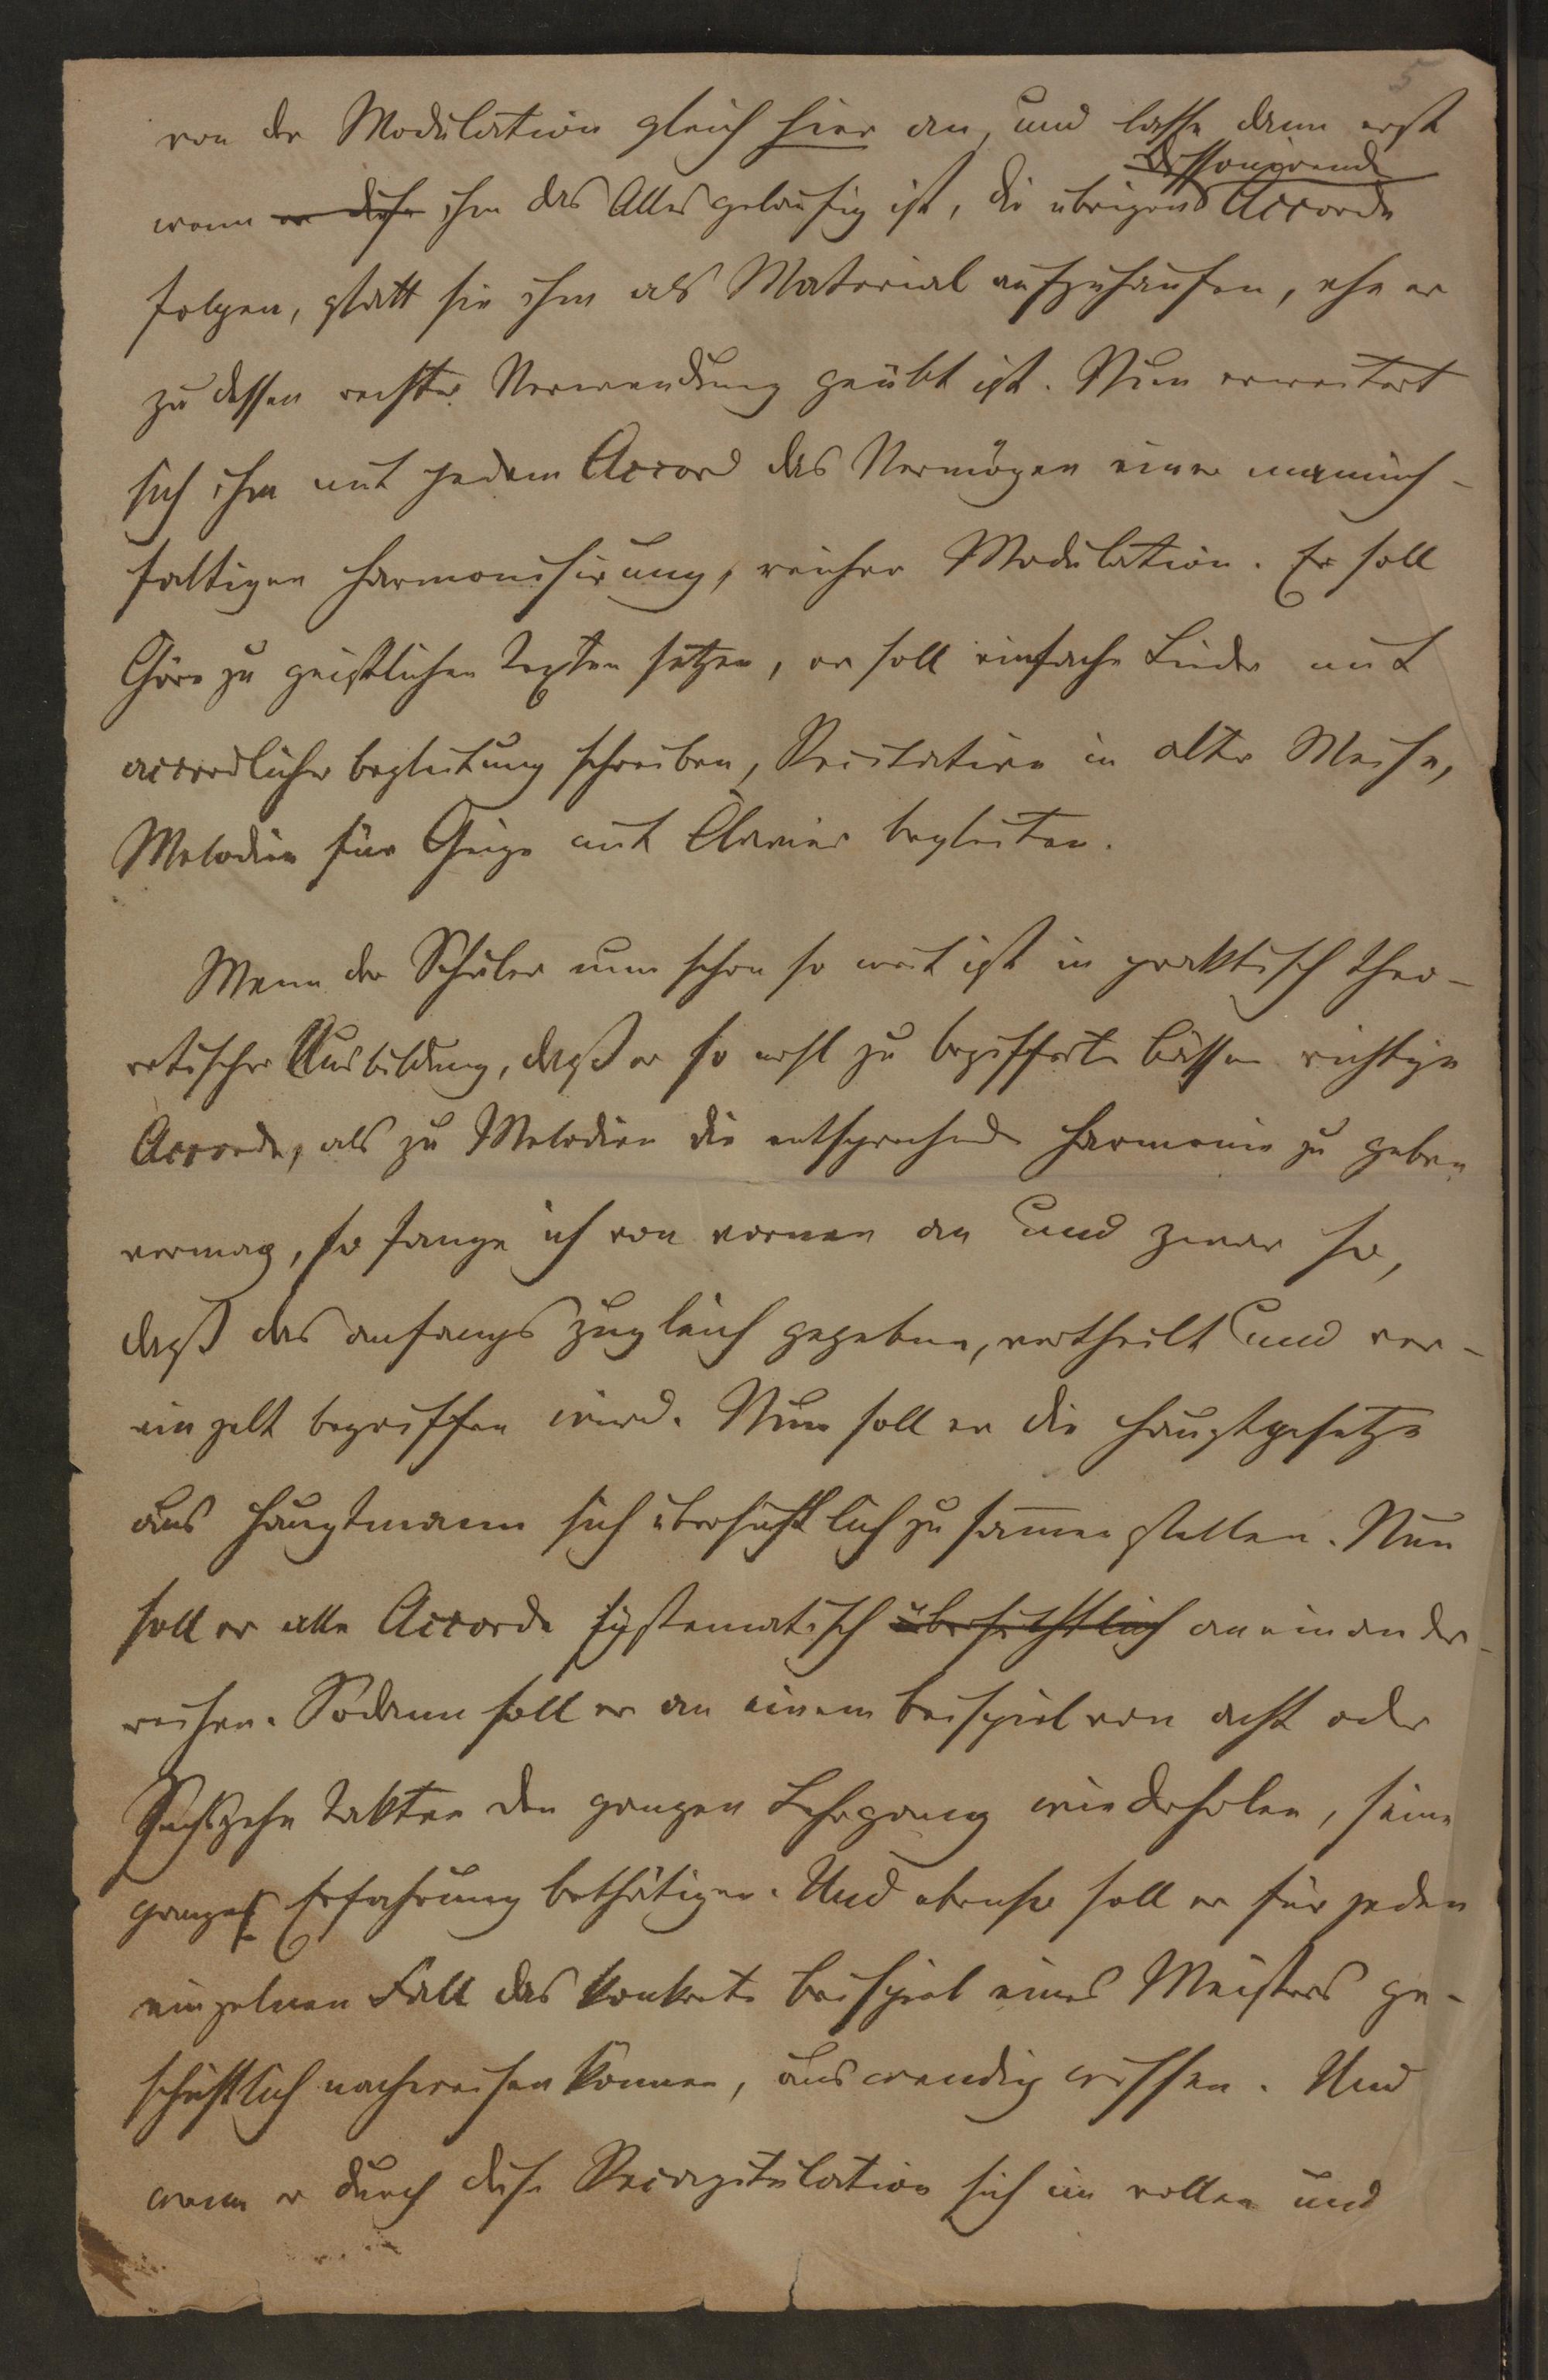 5
von der Modulation gleich hier an, und lasse dann erst
dissonirende
wenn er diese ihm das Alles geläufig ist, die übrigen Accorde
folgen, statt sie ihm als Material aufzuhäufen, ehe er
zu dessen rechter Verwendung geübt ist. Nun erweitert
sich ihm mit jedem Accord das Vermögen einer mannich-
faltigen Harmonisirung, reicher Modulation. Er soll
Chöre zu geistlichen Texten setzen, er soll einfache Lieder mit
accordlicher Begleitung schreiben, Recitative in alter Weise,
Melodien für Geige mit Clavier begleiten.
Wenn der Schüler nun schon so weit ist in praktisch theo-
retischer Ausbildung, daß er so wohl zu bezifferten Bässen richtige
Accorde, als zu Melodien die entsprechende Harmonie zu geben
vermag, so fange ich von vornen an und zwar so,
daß das anfangs zugleich gegebene, vertheilt und ver-
einzelt begriffen wird. Nun soll er die Hauptgesetze
aus Hauptmann sich übersichtlich zusammen stellen. Nun
soll er alle Accorde systematisch übersichtlich aneinander-
reihen. Sodann soll er an einem Beispiel von acht oder
Sechszehn Takten den ganzen Lehrgang wiederholen, seine
ganze Erfahrung bethätigen. Und ebenso soll er für jeden
einzelnen Fall das konkrete Beispiel eines Meisters ge-
schichtlich nachweisen können, auswendig wissen. Und
wenn er durch diese Recapitulation sich im vollen und